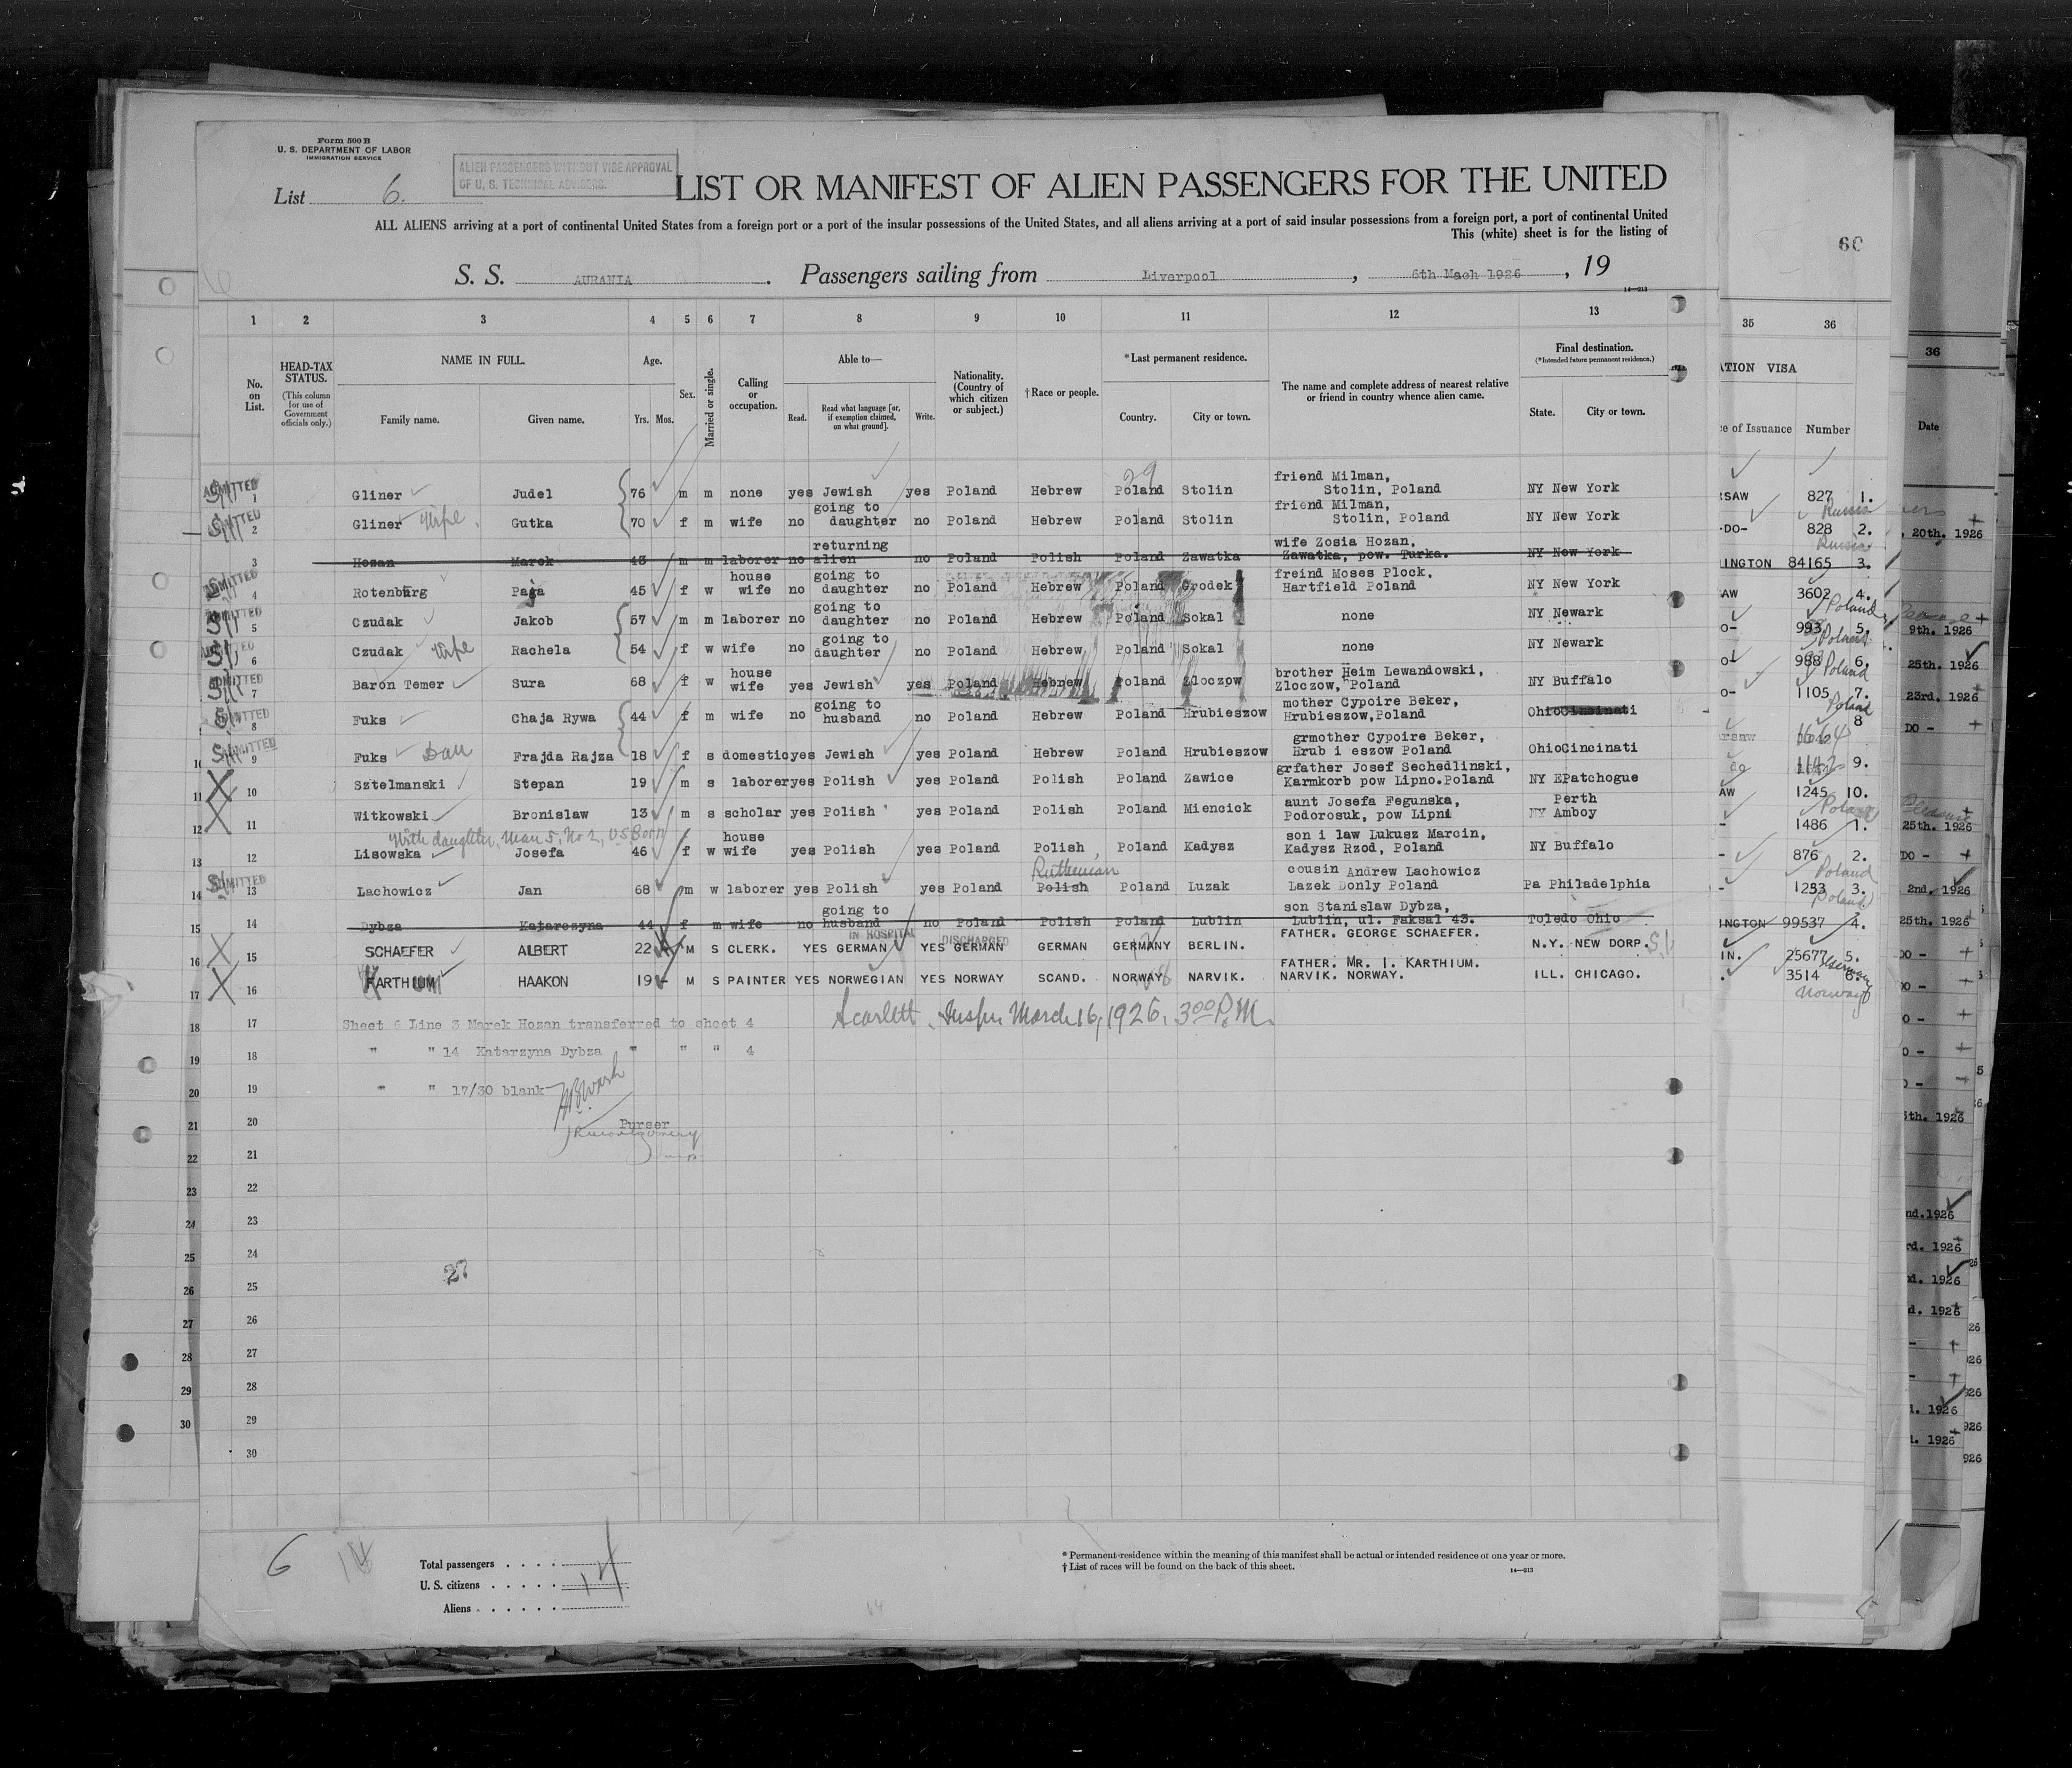 Form 500 B
U. S. DEPARTMENT OF LABOR
IMMIGRATION SERVICE
ALIEN PASSENGERS WITHOUT VISE APPROVAL
OF U. S. TECHNICAL ADVISERS.
List 6.
LIST OR MANIFEST OF ALIEN PASSENGERS FOR THE UNITED
ALL ALIENS arriving at a port of continental United States from a foreign port or a port of the insular possessions of the United States, and all aliens arriving at a port of said insular possessions from a foreign port, a port of continental United
This (white) sheet is for the listing of
60
S. S. AURANIA. Passengers sailing from Liverpool, 6th Mach 1926, 19
14—213
1 2 3 4 5 6 7 8 9 10 11 12 13 35 36
No. on List.
HEAD-TAX STATUS.
(This column for use of Government officials only.)
NAME IN FULL.
Family name. Given name.
Age.
Yrs. Mos.
Sex.
Married or single.
Calling or occupation.
Able to—
Read. Read what language [or, if exemption claimed, on what ground]. Write.
Nationality. (Country of which citizen or subject.)
†Race or people.
*Last permanent residence.
Country. City or town.
The name and complete address of nearest relative or friend in country whence alien came.
Final destination.
(*Intended future permanent residence.)
State. City or town.
ATION VISA
e of Issuance Number
36
Date
29
ADMITTED 1 Gliner Judel 76 m m none yes Jewish yes Poland Hebrew Poland Stolin friend Milman, Stolin, Poland NY New York RSAW 827 1.
Russia
ADMITTED 2 Gliner Wife Gutka 70 f m wife no going to daughter no Poland Hebrew Poland Stolin friend Milman, Stolin, Poland NY New York -DO- 828 2. , 20th. 1926
Russia
3 Hozan Marek 43 m m laborer no returning alien no Poland Polish Poland Zawatka wife Zosia Hozan, Zawatka, pow. Turka. NY New York INGTON 84165 3.
ADMITTED 4 Rotenburg Paja 45 f w house wife no going to daughter no Poland Hebrew Poland Grodek freind Moses Plock, Hartfield Poland NY New York AW 3602 4.
Poland
ADMITTED 5 Czudak Jakob 57 m m laborer no going to daughter no Poland Hebrew Poland Sokal none NY Newark O- 993 5. 9th. 1926
Poland
ADMITTED 6 Czudak Wife Rachela 54 f w wife no going to daughter no Poland Hebrew Poland Sokal none NY Newark O- 988 6. 25th. 1926
Poland
ADMITTED 7 Baron Temer Sura 68 f w house wife yes Jewish yes Poland Hebrew Poland Zloczow brother Heim Lewandowski, Zloczow, Poland NY Buffalo O- 1105 7. 23rd. 1926
Poland
ADMITTED 8 Fuks Chaja Rywa 44 f m wife no going to husband no Poland Hebrew Poland Hrubieszow mother Cypoire Beker, Hrubieszow,Poland Ohio Cincinati rsaw 1664 8 DO -
ADMITTED 9 Fuks Dau Frajda Rajza 18 f s domestic yes Jewish yes Poland Hebrew Poland Hrubieszow grmother Cypoire Beker, Hrub i eszow Poland Ohio Cincinati do 1142 9.
10 Sztelmanski Stepan 19 m s laborer yes Polish yes Poland Polish Poland Zawice grfather Josef Sechedlinski, Karmkorb pow Lipno.Poland NY EPatchogue AW 1245 10.
Poland
11 Witkowski Bronislaw 13 m s scholar yes Polish yes Poland Polish Poland Miencick aunt Josefa Fegunska, Podorosuk, pow Lipni NY Perth Amboy 1486 1. 25th. 1926
With daughter, Man 5, No 2, U S Born
12 Lisowska Josefa 46 f w house wife yes Polish yes Poland Polish Poland Kadysz son i law Lukusz Marcin, Kadysz Rzod, Poland NY Buffalo 876 2. DO -
Poland
Ruthenian
ADMITTED 13 Lachowicz Jan 68 m w laborer yes Polish yes Poland Polish Poland Luzak cousin Andrew Lachowicz Lazek Donly Poland Pa Philadelphia 1253 3. 2nd. 1926
Poland
14 Dybza Katarozyna 44 f m wife no going to husband no Poland Polish Poland Lublin son Stanislaw Dybza, Lublin, ul. Faksal 43. Toledo Ohio INGTON 99537 4. 25th. 1926
IN HOSPITAL DISCHARGED
15 SCHAEFER ALBERT 22 M S CLERK. YES GERMAN YES GERMAN GERMAN GERMANY BERLIN. FATHER. GEORGE SCHAEFER. N.Y. NEW DORP. IN. 25677 5. DO -
Germany
16 KARTHIUM HAAKON 19 M S PAINTER YES NORWEGIAN YES NORWAY SCAND. NORWAY NARVIK. FATHER. MR. I. KARTHIUM. NARVIK. NORWAY. ILL. CHICAGO. 3514 6.
Norway
17 Sheet 6 Line 3 Marek Hozan transferred to sheet 4 Scarlett. Inspr. March 16, 1926, 3 00 P.M.
18 " " 14 Katarzyna Dybza " " " 4
19 " " 17/30 blank
20 Purser
21
22
23
24
25
26
27
28
29
30
27
6
Total passengers
U. S. citizens 14
Aliens
* Permanent residence within the meaning of this manifest shall be actual or intended residence of one year or more.
† List of races will be found on the back of this sheet.
14—213